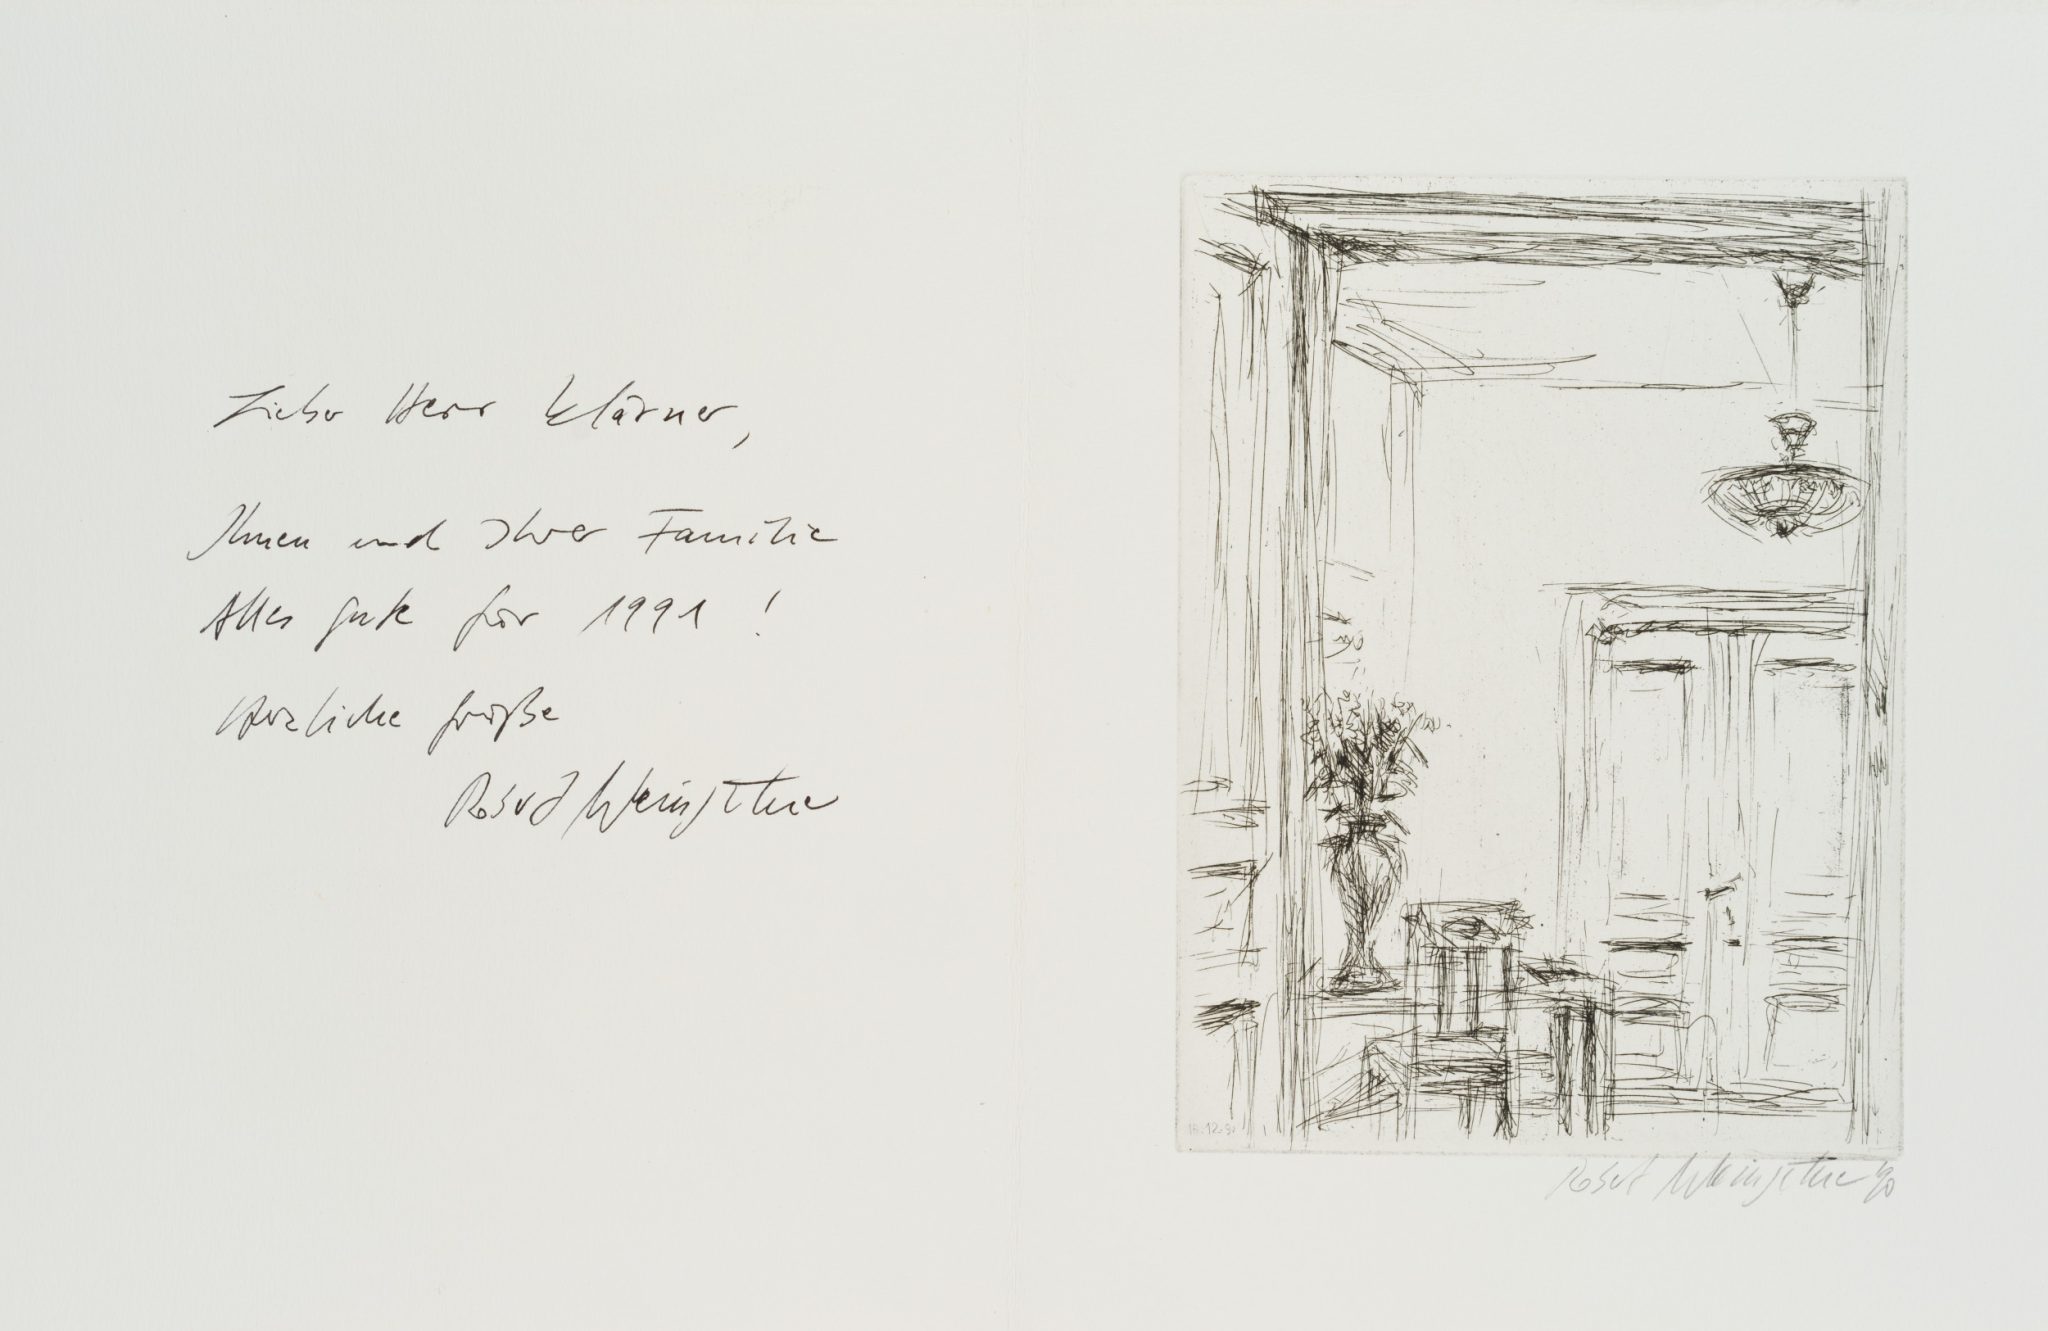 Lieber Herr Klärner,
Ihnen und Ihrer Familie
Alles gute für 1991!
Herzliche Grüße
Robert Weingstme
12.90
Robert Weingstme 90